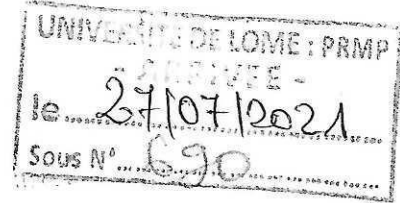 UNIVERSITE DE LOME : PRMP
- ARRIVEE -
le 27/07/2021
Sous N° 690